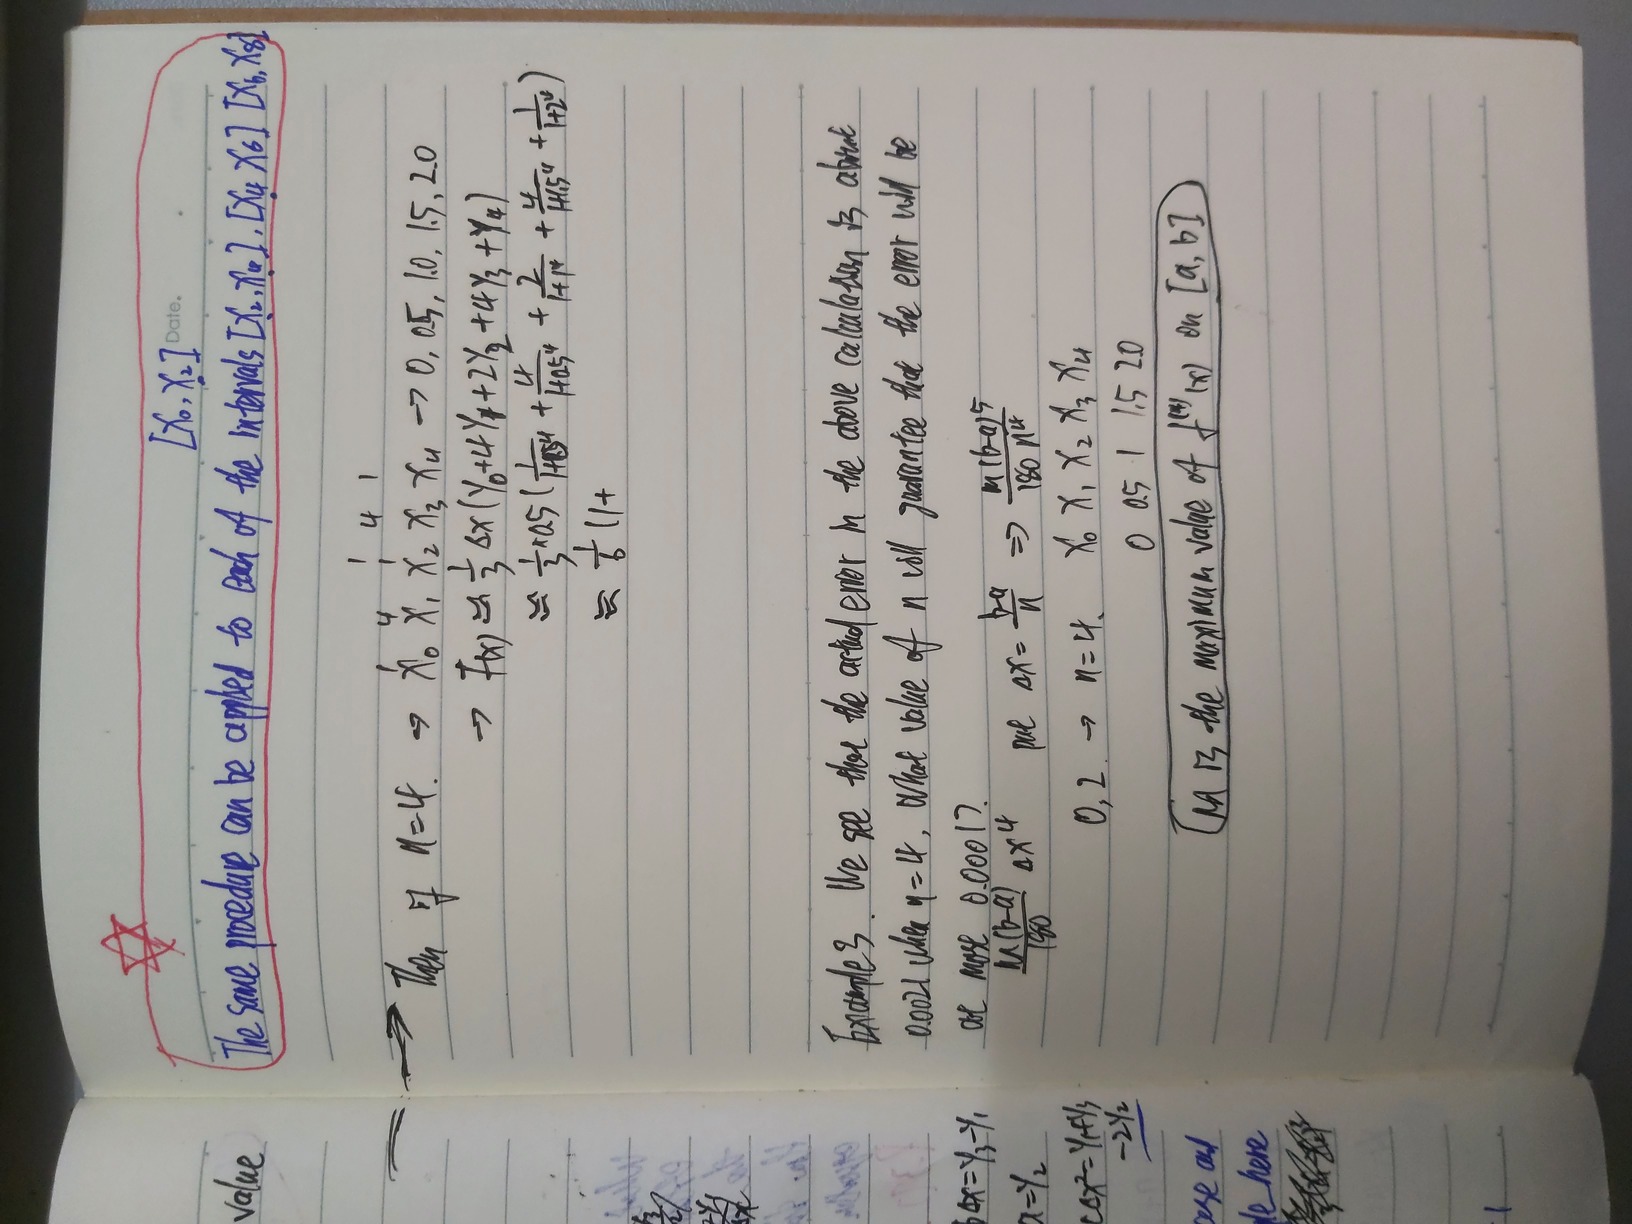 value
[X₀, X₂] Date.
The same procedure can be applied to each of the intervals [X₂, X₄], [X₄ X₆] [X₆, X₈]
1 4 1
1 4 1
Then if n=4. → X₀ X₁ X₂ X₃ X₄ → 0, 0.5, 1.0, 1.5, 2.0
→ F(x) ≈ 1/3 Δx (Y₀+4Y₁+2Y₂+4Y₃+Y₄)
≈ 1/3 × 0.5 ( + 4/(1+0.5⁴) + 2/(1+1⁴) + 4/(1+1.5⁴) + 1/(1+2⁴) )
≈ 1/6 (1+
Example 3. We see that the actual error in the above calculation is about
0.0021 when n=4. What value of n will guarantee that the error will be
at most 0.0001?
M(b-a)/180 Δx⁴ put Δx = (b-a)/n ⇒ M(b-a)⁵/180 n⁴
0, 2 → n=4. X₀ X₁ X₂ X₃ X₄
0 0.5 1 1.5 2.0
M is the maximum value of f⁽⁴⁾(x) on [a, b]
Δx=Y₃-Y₁
a=Y₂
cΔx²=Y₁+Y₃
-2Y₂
here